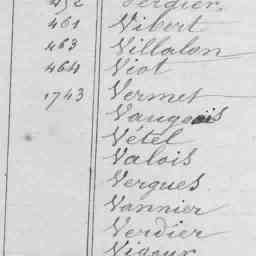 452 Verdier
461 Vibert
463 Villalon
464 Viot
1743 Vermet
Vaugeois
Vétel
Valois
Vergues
Vannier
Verdier
Vigour